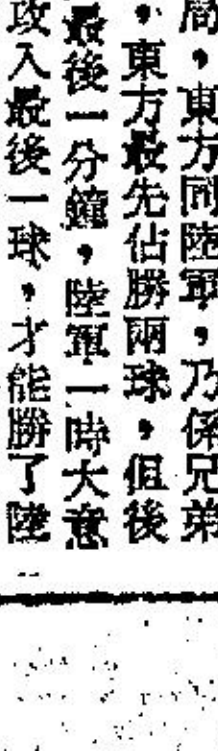 局，東方同陸軍，乃係兄弟
，東方最先佔勝兩球，但後
最後一分鐘，陸軍一時大意
攻入最後一球，才能勝了陸